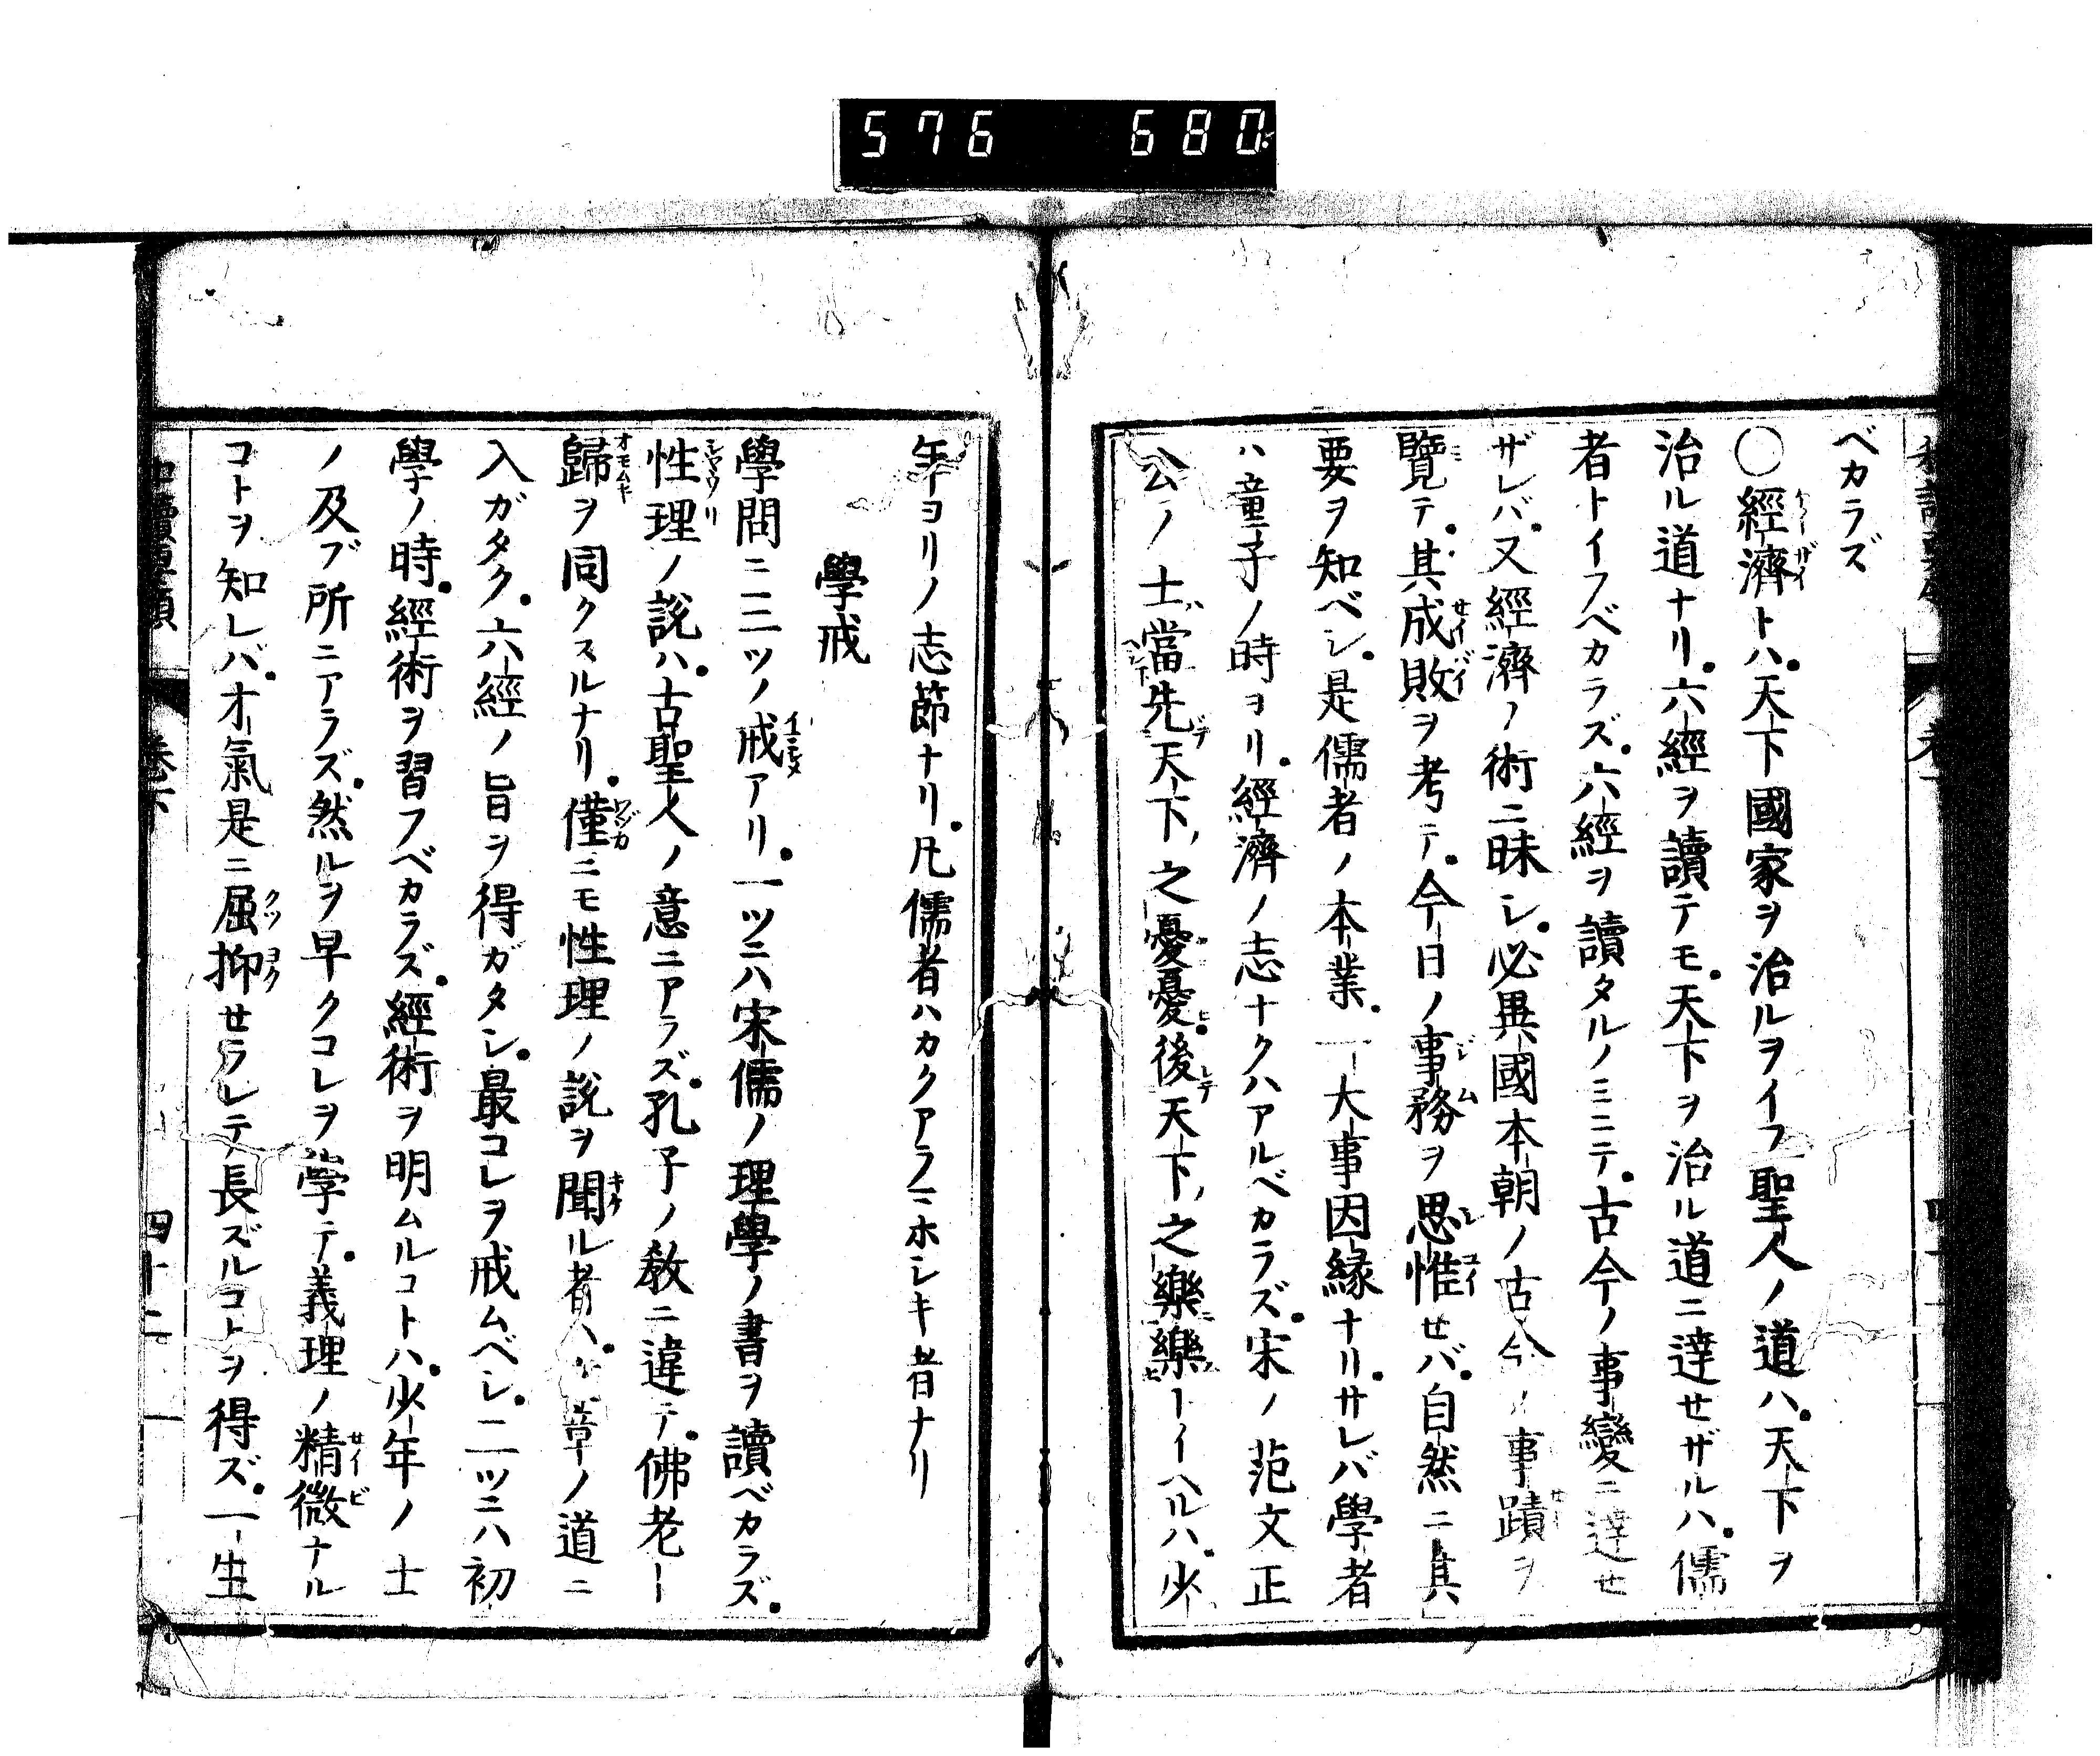 576 680
ベカラズ
○經濟トハ天下國家ヲ治ルヲイフ聖人ノ道ハ天下ヲ
治ル道ナリ六經ヲ讀テモ天下ヲ治ル道ニ達セザルハ儒
者トイフベカラズ六經ヲ讀タルノミニテ古今ノ事變ニ達セ
ザレバ又經濟ノ術ニ昧シ必異國本朝ノ古今ノ事蹟ヲ
覽テ其成敗ヲ考テ今日ノ事務ヲ思惟セバ自然ニ其
要ヲ知ベシ是儒者ノ本業一大事因緣ナリサレバ學者
ハ童子ノ時ヨリ經濟ノ志ナクハアルベカラズ宋ノ范文正
公ノ士當先天下之憂憂後天下之樂樂トイヘルハ少
年ヨリノ志節ナリ凡儒者ハカクアラマホシキ者ナリ
學戒
學問ニ二ツノ戒アリ一ツニハ宋儒ノ理學ノ書ヲ讀ベカラズ
性理ノ説ハ古聖人ノ意ニアラズ孔子ノ教ニ違テ佛老ト
歸ヲ同クスルナリ僅ニモ性理ノ説ヲ聞ル者ハ文章ノ道ニ
入ガタク六經ノ旨ヲ得ガタシ最コレヲ戒ムベシ二ツニハ初
學ノ時經術ヲ習フベカラズ經術ヲ明ムルコトハ少年ノ士
ノ及ブ所ニアラズ然ルヲ早クコレヲ學テ義理ノ精微ナル
コトヲ知レバ才氣是ニ屈抑セラレテ長ズルコトヲ得ズ一生
卷下
四十二